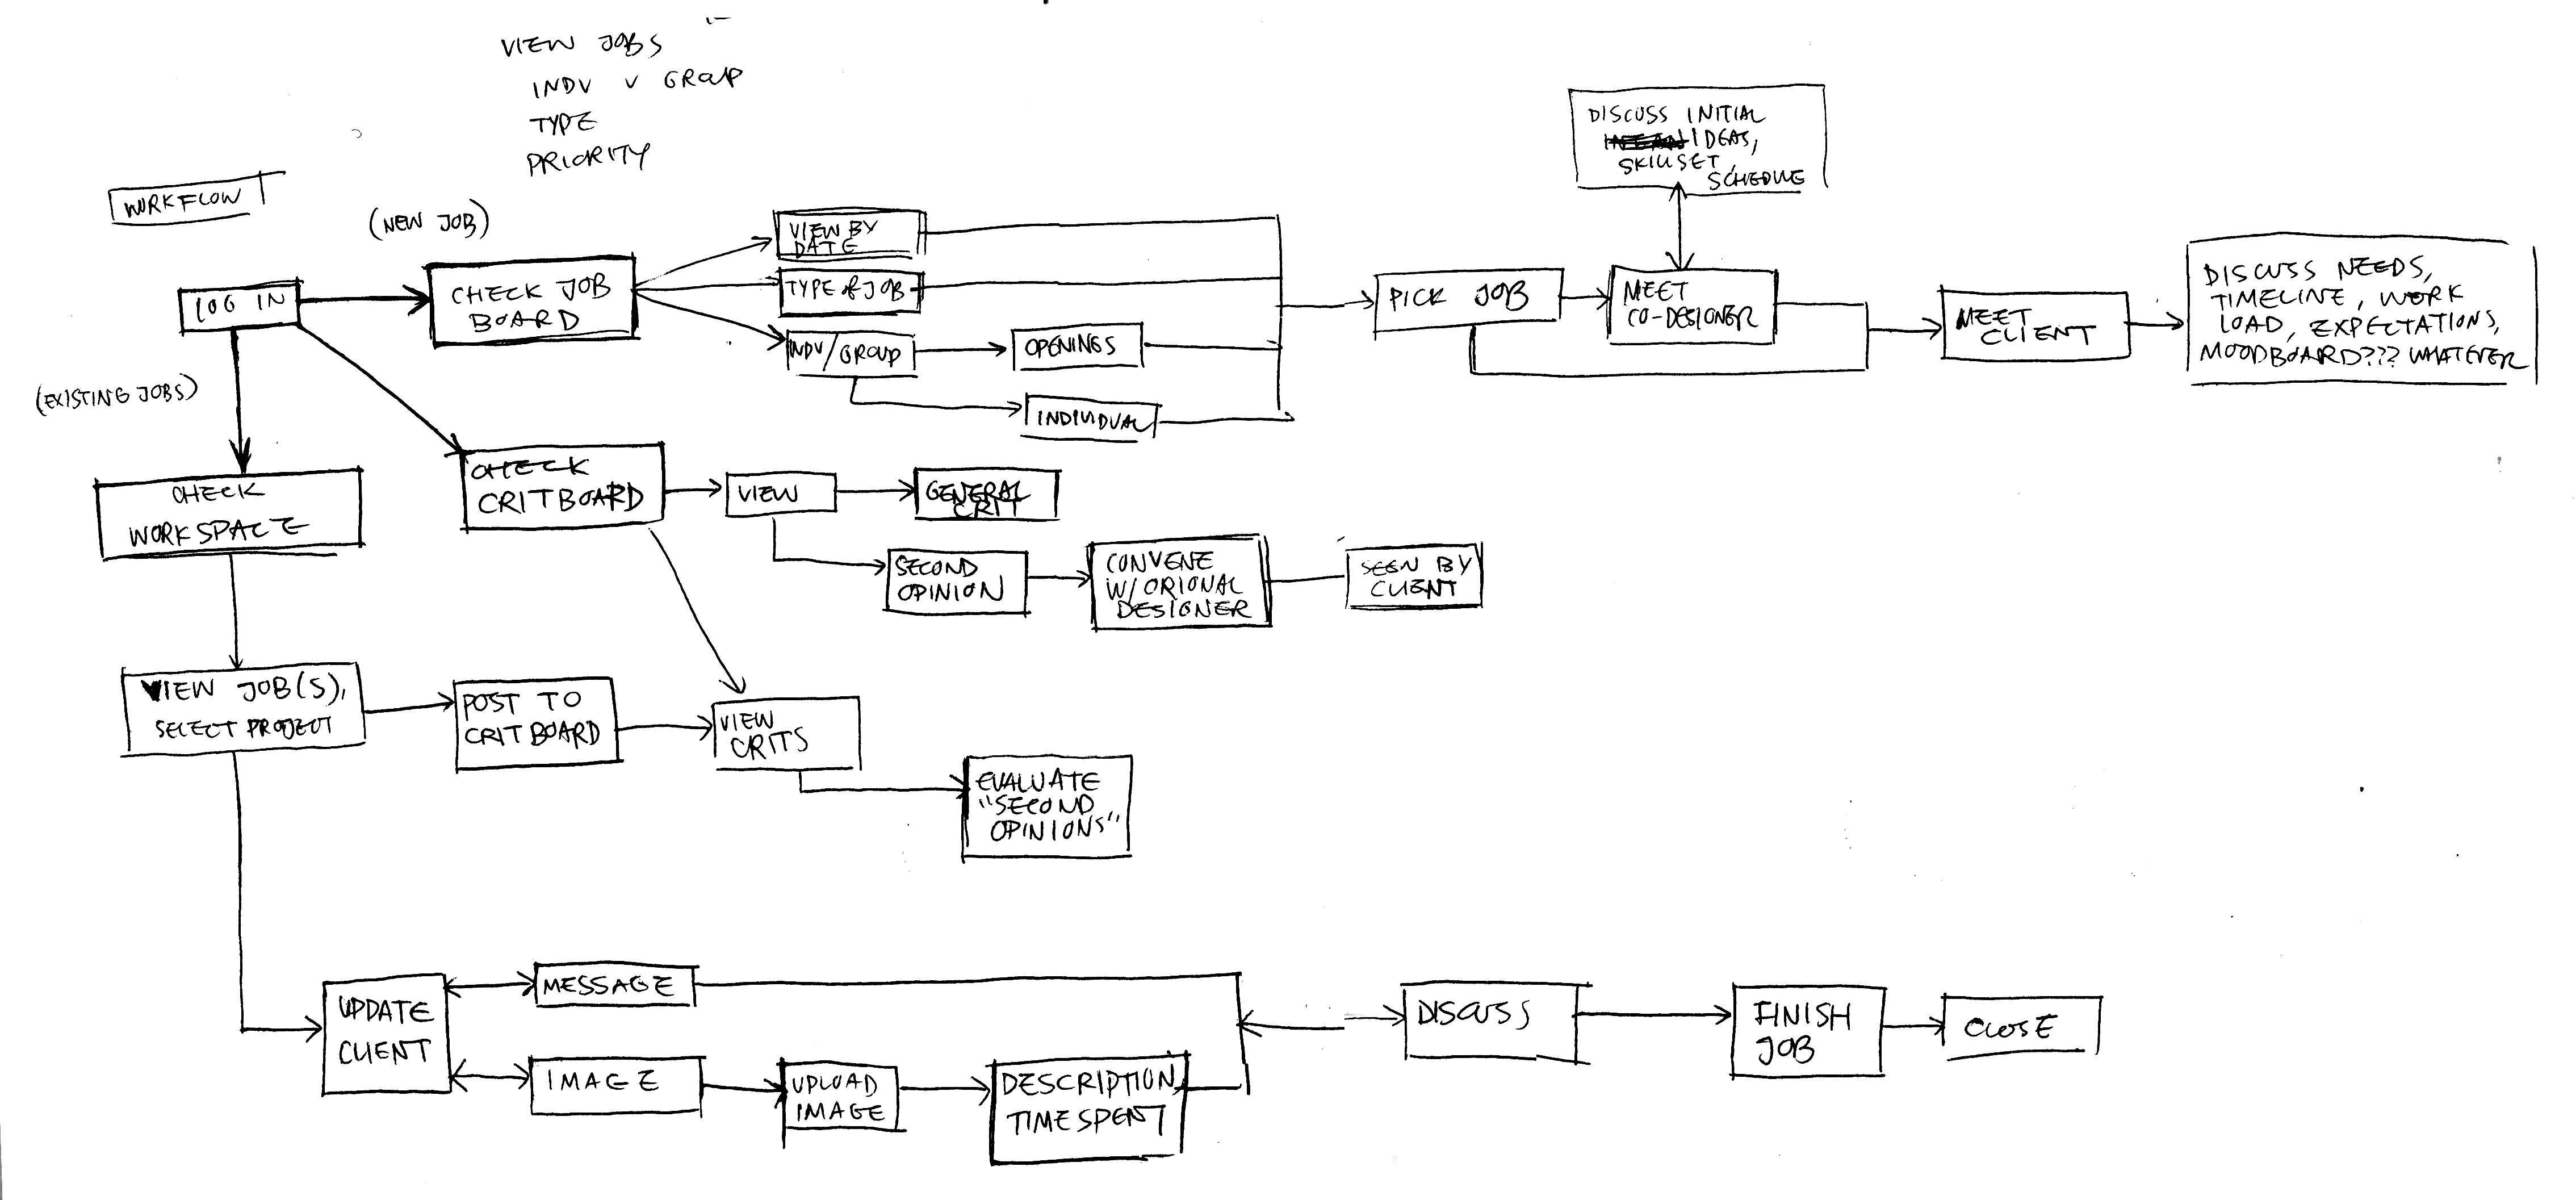 VIEW JOBS
INDV V GROUP
TYPE
PRIORITY
WORKFLOW
(NEW JOB)
LOG IN
CHECK JOB
BOARD
VIEW BY
DATE
TYPE of JOB
INDV/GROUP
OPENINGS
INDIVIDUAL
PICK JOB
DISCUSS INITIAL
IDEAS,
SKILLSET,
SCHEDULE
MEET
CO-DESIGNER
MEET
CLIENT
DISCUSS NEEDS,
TIMELINE, WORK
LOAD, EXPECTATIONS,
MOODBOARD??? WHATEVER
(EXISTING JOBS)
CHECK
WORKSPACE
CHECK
CRITBOARD
VIEW
GENERAL
CRIT
SECOND
OPINION
CONVENE
W/ORIONAL
DESIGNER
SEEN BY
CLIENT
VIEW JOB(S),
SELECT PROJECT
POST TO
CRITBOARD
VIEW
CRITS
EVALUATE
"SECOND
OPINIONS"
UPDATE
CLIENT
MESSAGE
IMAGE
UPLOAD
IMAGE
DESCRIPTION,
TIME SPENT
DISCUSS
FINISH
JOB
CLOSE